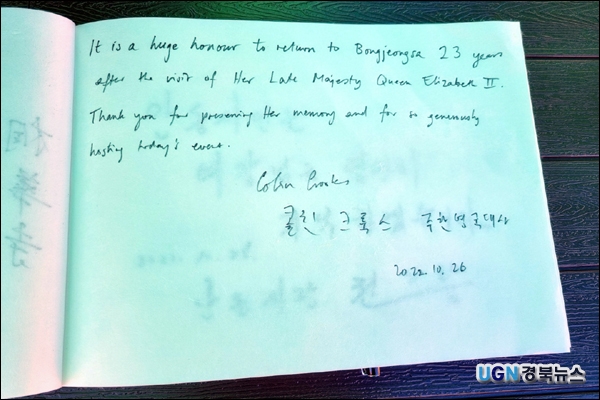 It is a huge honour to return to Bongjeongsa 23 years
after the visit of Her Late Majesty Queen Elizabeth II.
Thank you for preserving Her memory and for so generously
hosting today's event.
Colin Crooks
콜린 크룩스 주한영국대사
2022.10.26
UGN경북뉴스